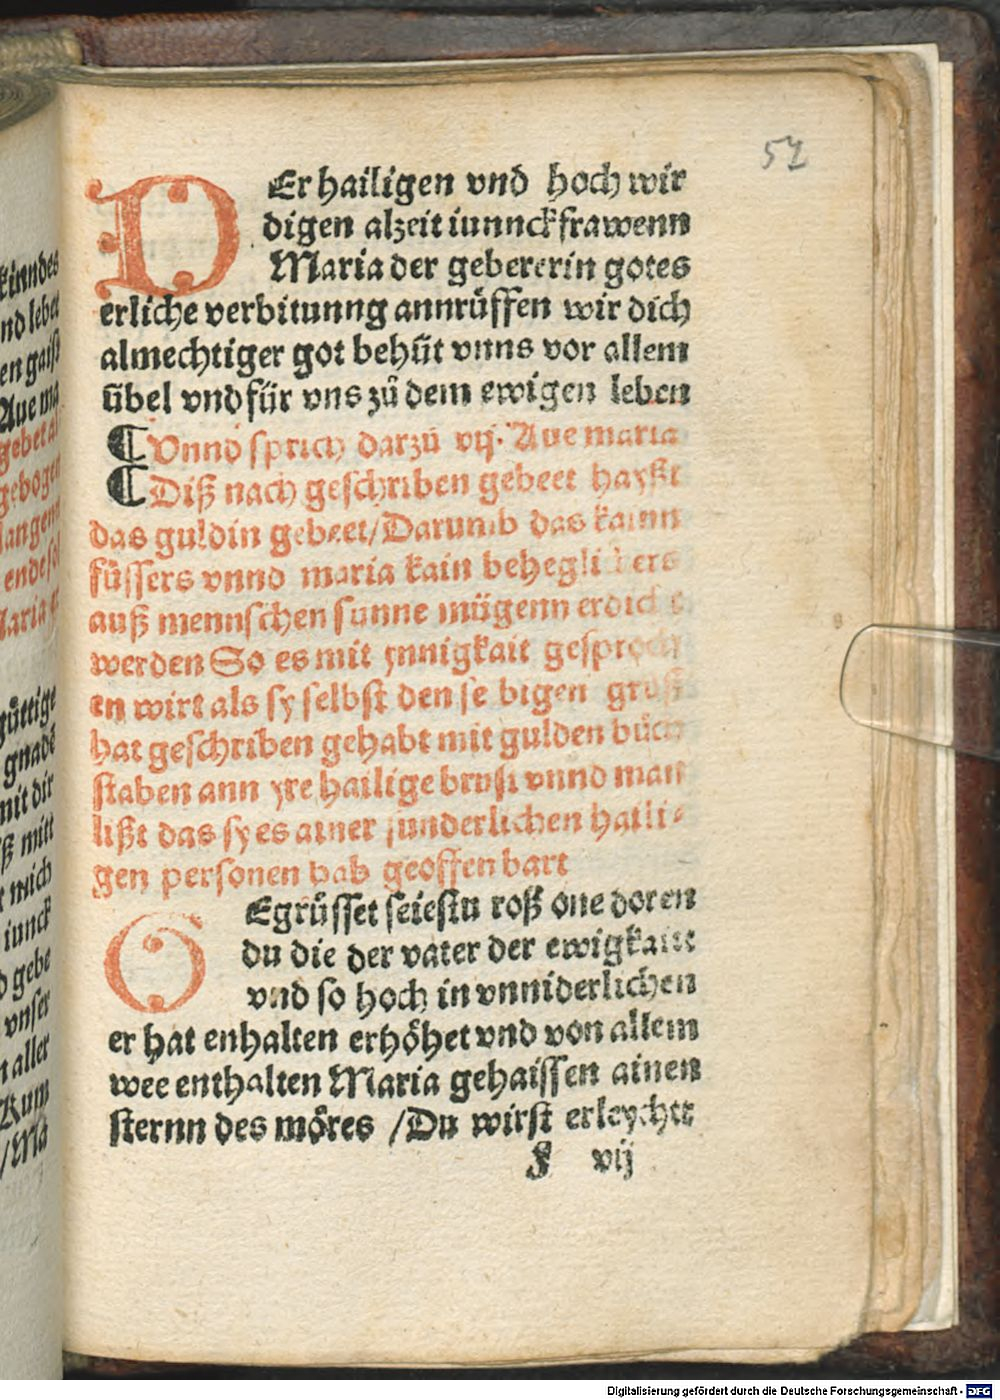 52
DEr hailigen vnd hoch wir
digen alzeit iunnckfrawenn
Maria der gebererin gotes
erliche verbitunng annrüffen wir dich
almechtiger got behüt vnns vor allem
übel vnd für vns zů dem ewigen leben
¶ Vnnd sprich darzů vij. Aue maria
¶ Diß nach geschriben gebeet hayßt
das guldin gebeet/Darumb das kainn
füssers vnnd maria kain behegli
auß mennschen sunne mügenn
werden So es mit ynnigkait gesproch
en wirt als sy selbst den se bigen
hat geschriben gehabt mit gulden bůch
staben ann yre hailige brust vnnd man
lißt das sy es ainer sunderlichen haili⸗
gen personen hab geoffen bart
GEgrüsset seiestu roß one doren
du die der vater der ewigkaitt
vnd so hoch in vnniderlichen
er hat enhalten erhöhet vnd von allem
wee enthalten Maria gehaissen ainen
sternn des möres /Du wirst erleychtt
vij
kinndes
nd lebet
en gaist
Aue ma
gebet al
gebogen
langenn
ende sol
Maria
güttige
gnade
mit dir
mitt
mich
iunck
gebe
vnser
aller
Kum
/Ma
Digitalisierung gefördert durch die Deutsche Forschungsgemeinschaft - DFG